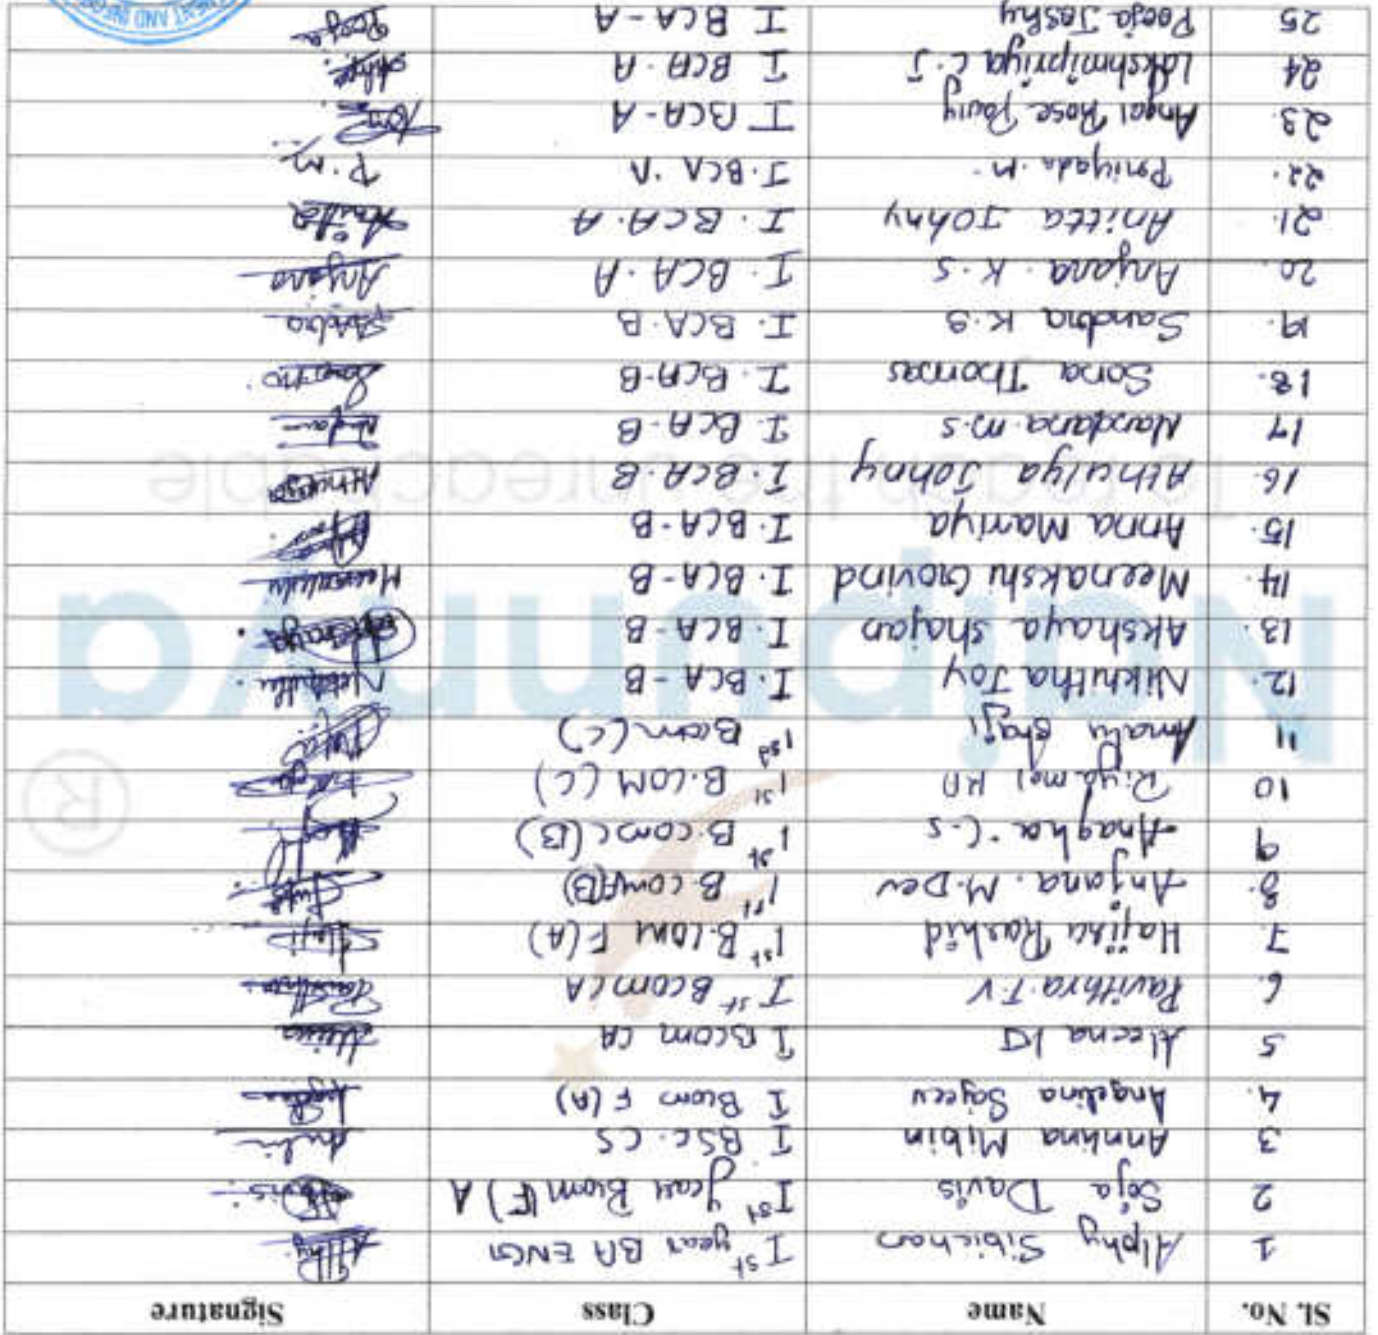 Sl. No. Name Class Signature
1 Alphy Sibichan Ist year BA ENG Alphy
2 Soja Davis Ist year Bcom(F) A Davis
3 Annlina Mibin I BSc. CS
4. Angelina Sajeev I Bcom F(A)
5 Aleena KJ I Bcom CA
6. Pavithra.T.V Ist Bcom CA Pavithra
7. Hajira Rashid 1st B.COM F(A)
8. Anjana. M. Dev 1st B.com (B)
9 Anagha C.S 1st B.com (B)
10 Riya mol 1st B.COM (C)
11 Amalu Shaji 1st Bcom (C)
12. Nikhitha Joy I. BCA - B
13. Akshaya Shajan I. BCA - B Akshaya
14. Meenakshi Govind I. BCA - B Meenakshi
15. Anna Mariya I. BCA - B
16. Athulya Johny I. BCA. B Athulya
17 Nandana m.s I BCA - B
18. Sona Thomas I. BCA-B
19. Sandra K.S I. BCA. B Sandra
20. Anjana. K. S I. BCA. A Anjana
21. Anitta Johny I. BCA. A Anitta
22. Priyada. M. I. BCA. A P.M
23. Angel Rose I BCA-A
24 Lakshmipriya C.J I BCA. A
25 Pooja Joshy I BCA - A Pooja
Naipunnya
®
To reach the unreachable